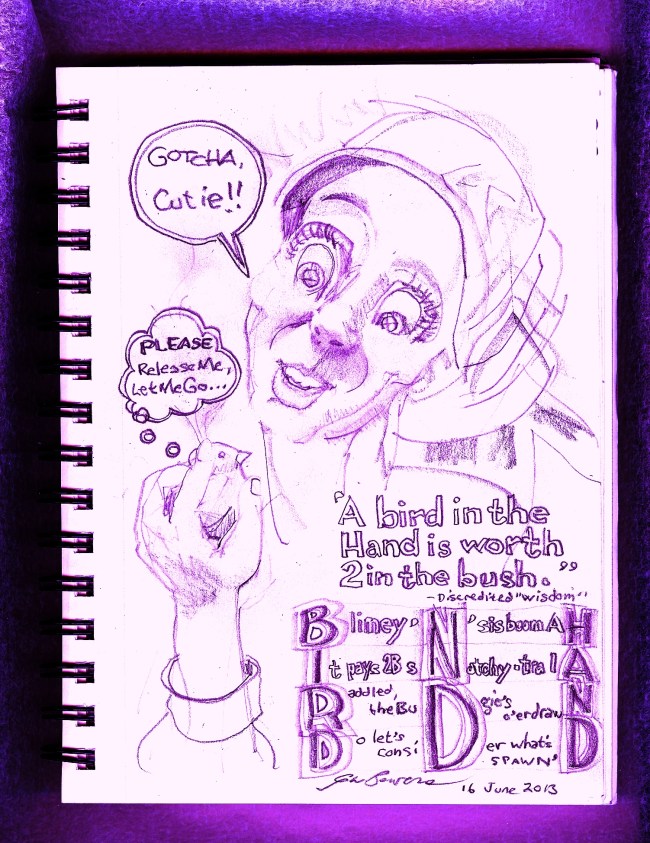 GOTCHA,
Cutie!!
PLEASE
Release Me,
Let Me Go...
"A bird in the
Hand is worth
2 in the bush."
- Discredited "wisdom"
Bliney, 'N' sis boom AH
It pays 2B s Natchy-tral A
Raddled, the Bu Dgie's o'erdrawN
Do let's consi Der what's SPAWN'D
16 June 2013